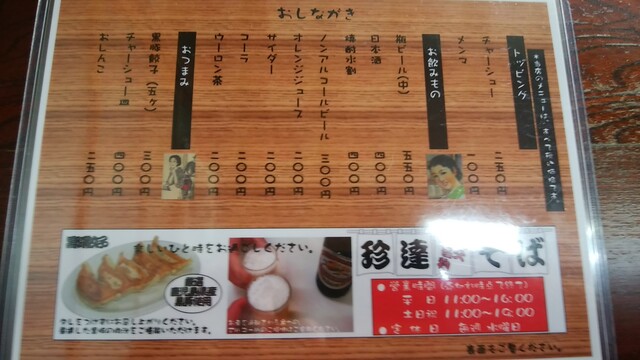 おしながき
トッピング
チャーシュー 二五〇円
メンマ 一〇〇円
お飲みもの
瓶ビール(中) 五五〇円
日本酒 四〇〇円
焼酎水割 四〇〇円
ノンアルコールビール 三〇〇円
オレンジジュース 二〇〇円
サイダー 二〇〇円
コーラ 二〇〇円
ウーロン茶 二〇〇円
おつまみ
黒豚餃子(五ヶ) 三〇〇円
チャーシュー皿 四〇〇円
おしんこ 二五〇円
楽しいひと時をお過ごしください。
珍達そば
●営業時間
平日 11:00〜16:00
土日祝 11:00〜19:00
●定休日 毎週水曜日
裏面もご覧ください。